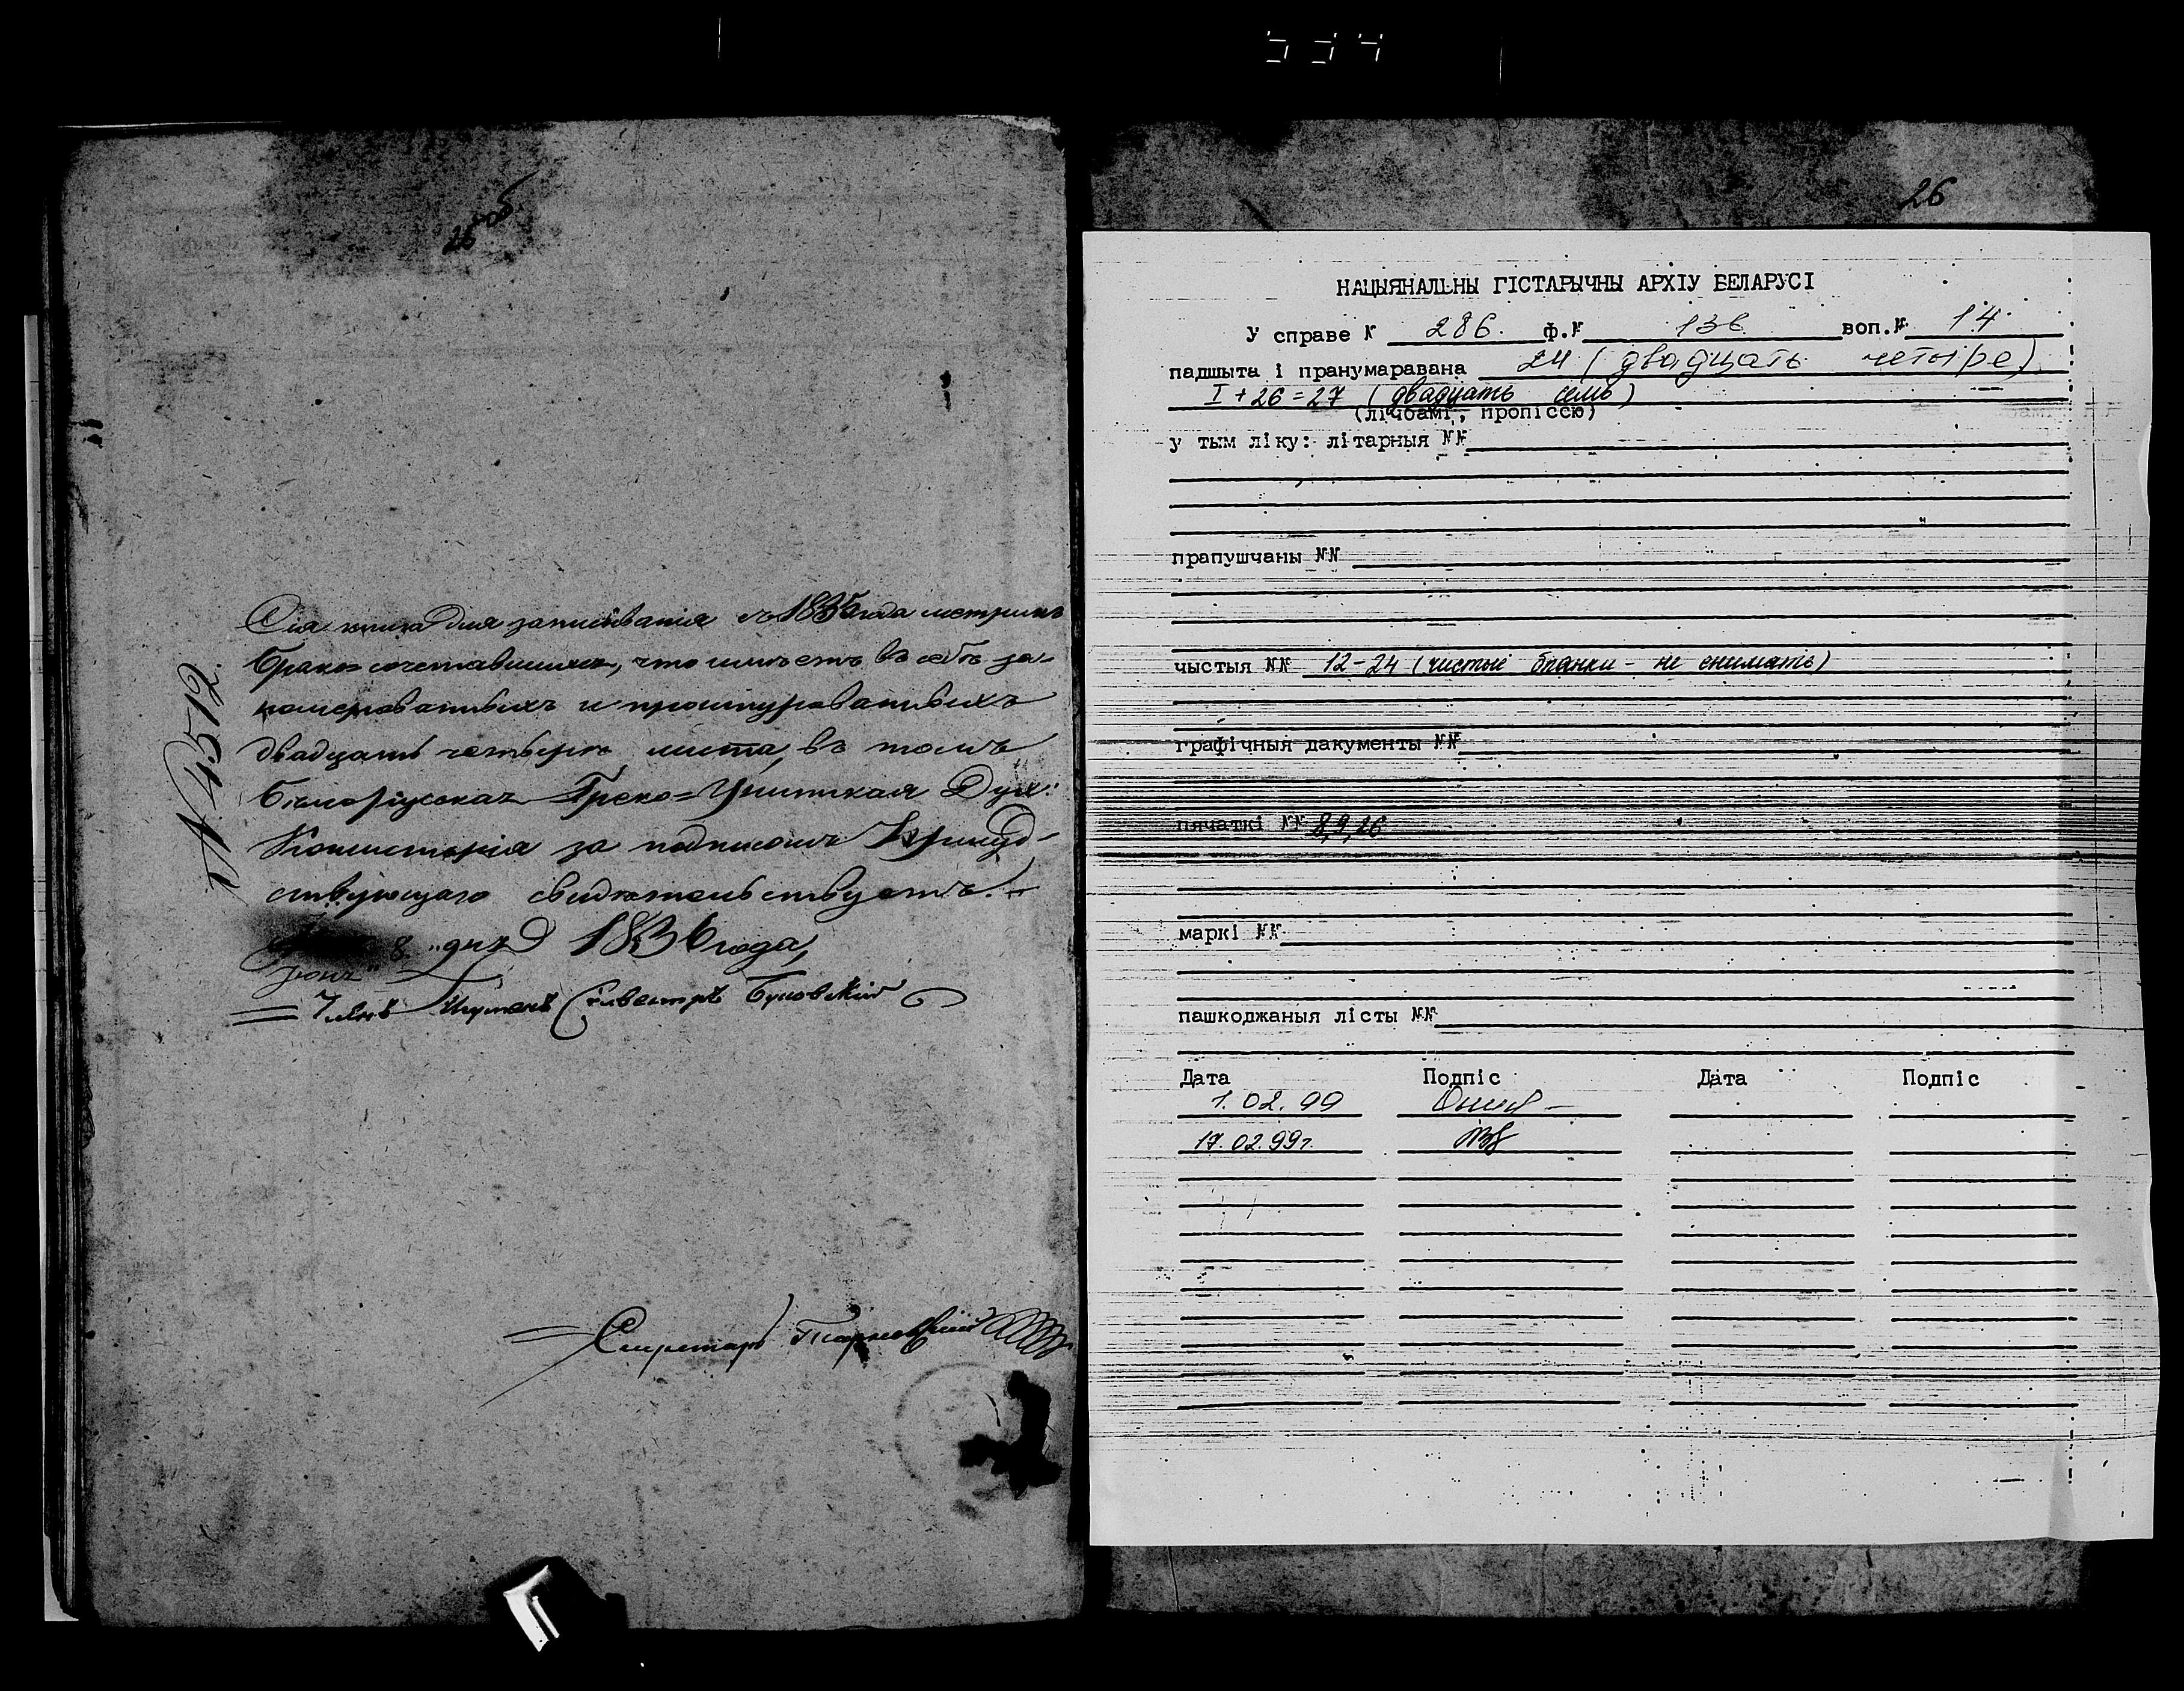 334
26 об
№ 4572.
Сія книга для записыванія съ 1836 года метрикъ
Брако=сочетавшихся, что имѣетъ въ себѣ за-
номерованныхъ и прошнурованныхъ
двадцать четыре листа, въ томъ
Бѣлорусская Греко=Унитская Дух:
Консисторія за подписомъ Присуд-
ствующаго свидѣтельствуетъ.
Іюня 8 "дня 1836 года,
Членъ Игуменъ Сильвестръ
Секретарь
26
НАЦЫЯНАЛЬНЫ ГІСТАРЫЧНЫ АРХІУ БЕЛАРУСІ
У справе № 286. ф.№ 136 воп.№ 14
падшыта і пранумаравана 24 (двадцать четыре)
I + 26 = 27 (двадцать семь)
(лічбамі, пропіссю)
у тым ліку: літарныя №№
прапушчаны №№
чыстыя №№ 12-24 (чистые бланки - не снимать)
графічныя дакументы №№
пячаткі №№ 8,9,26
маркі №№
пашкоджаныя лісты №№
Дата Подпіс Дата Подпіс
1.02.99
17.02.99г.